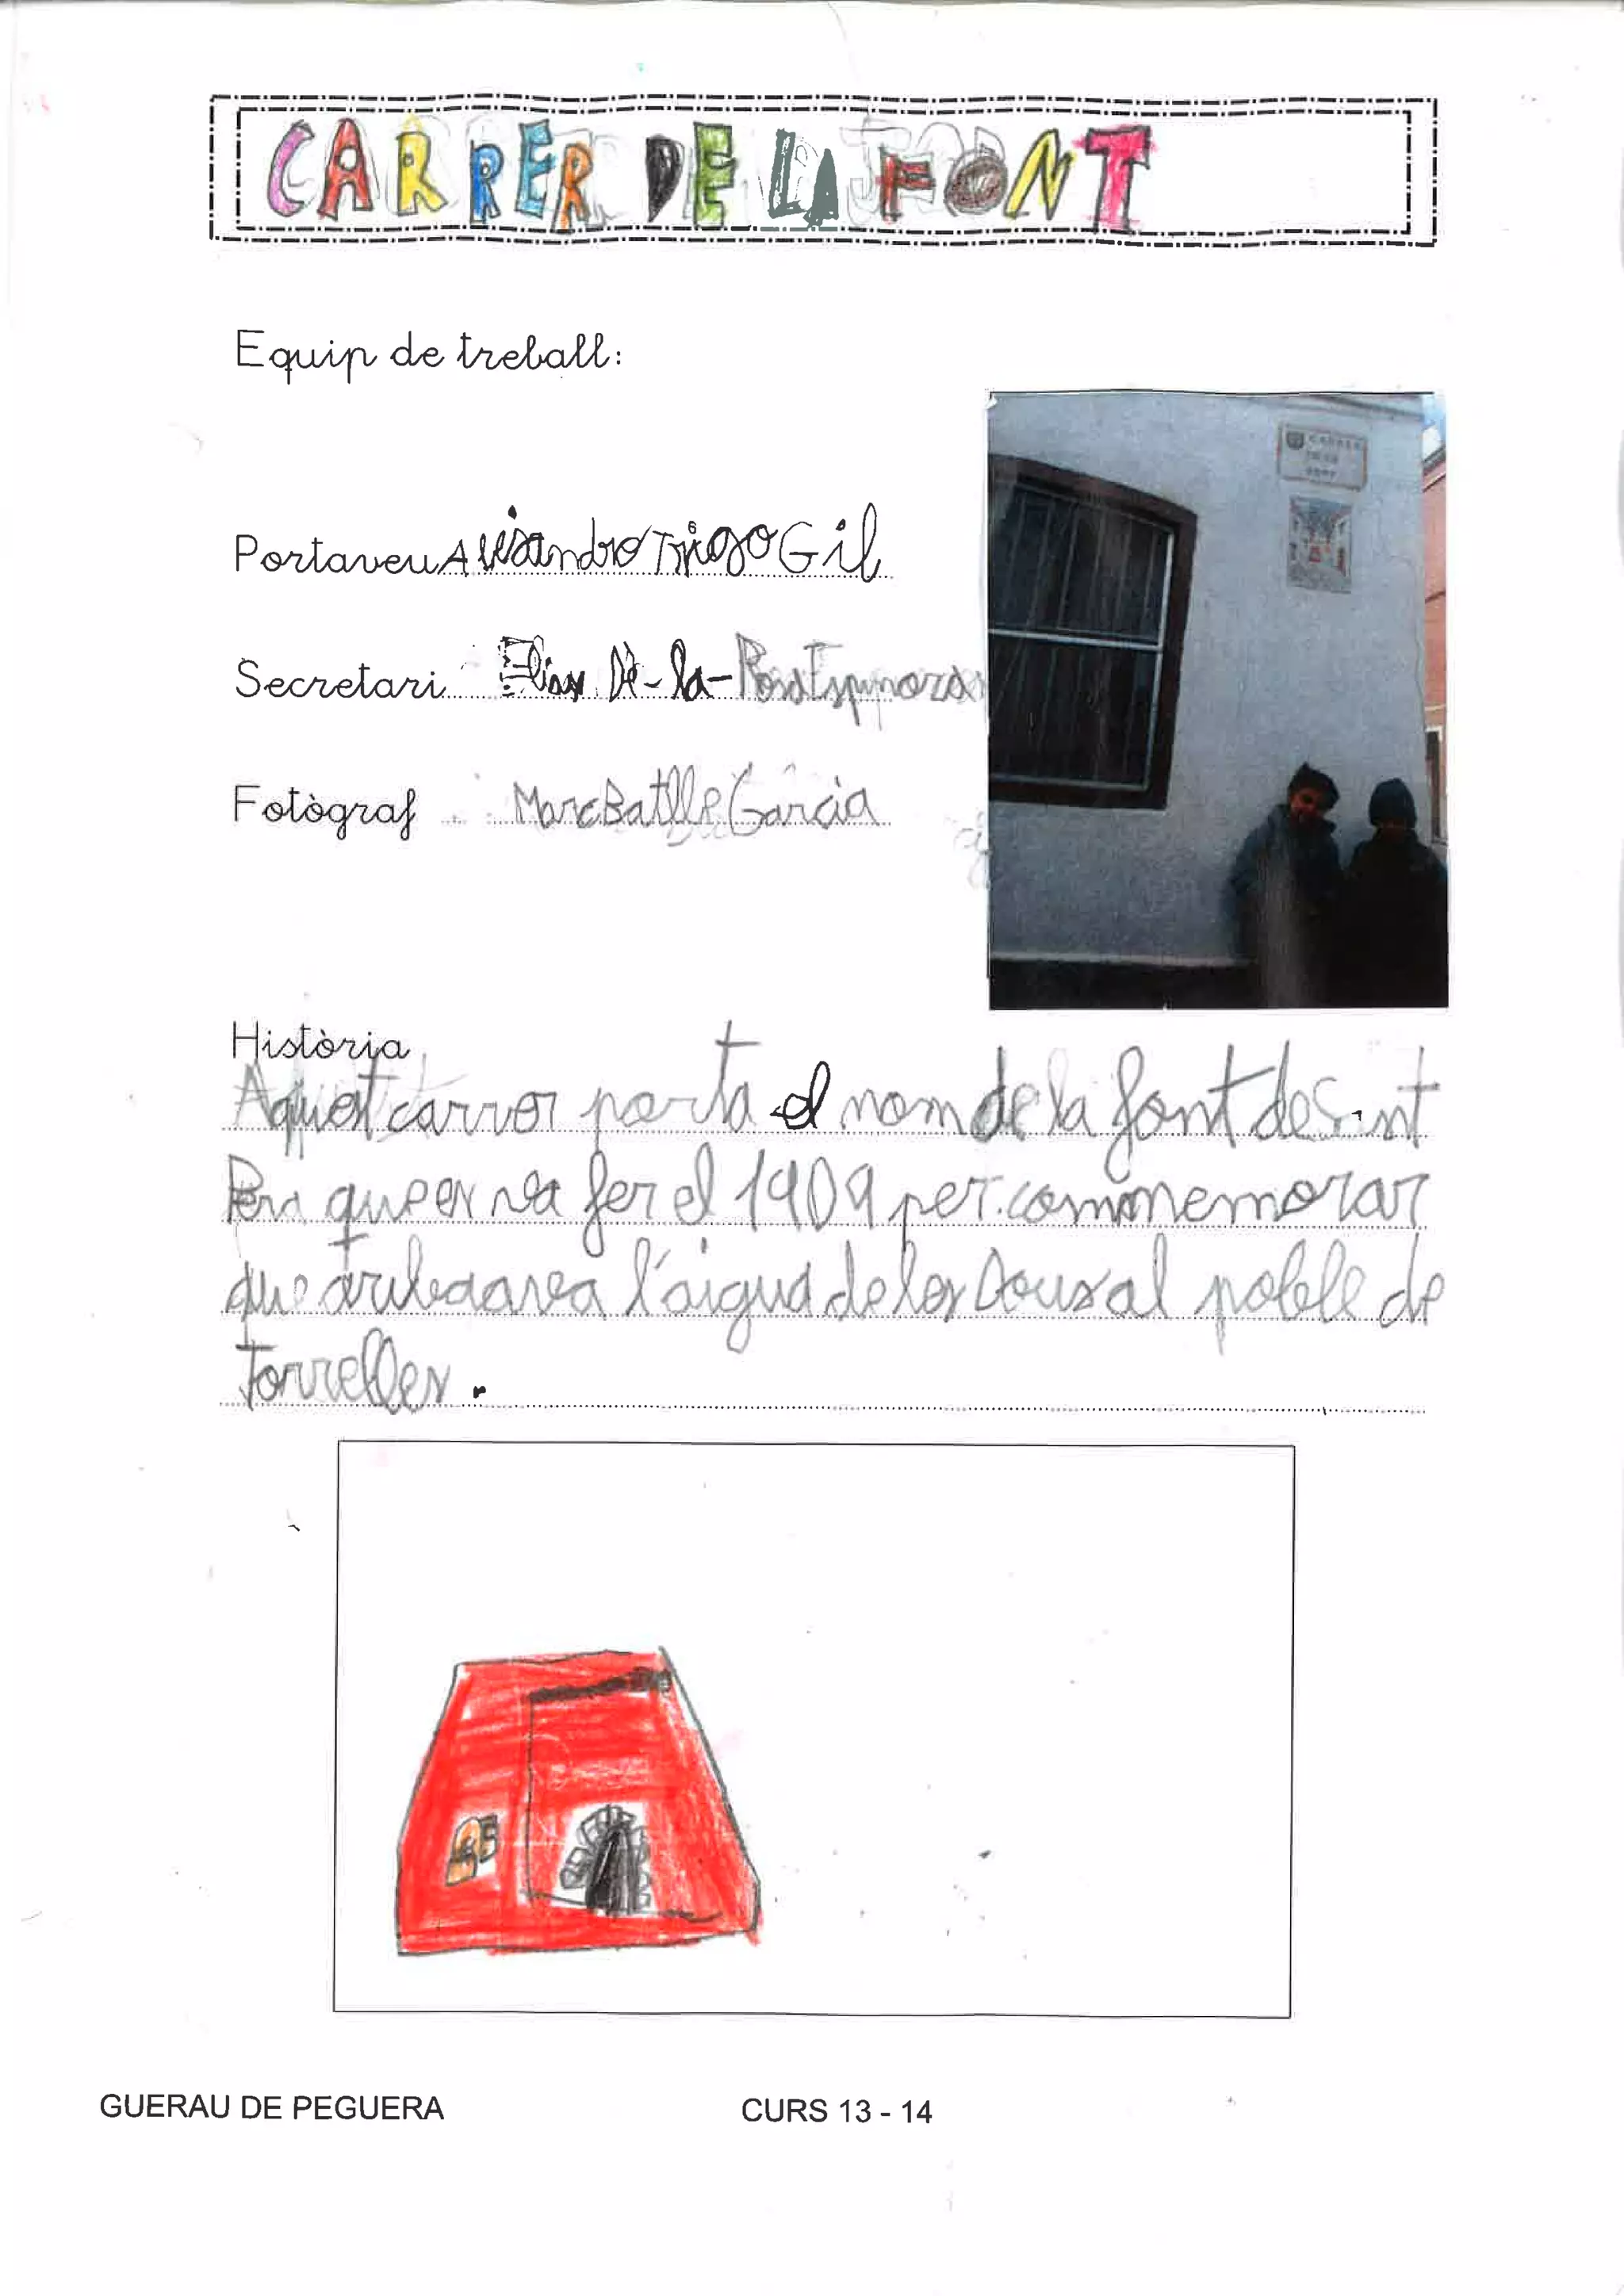 CARRER DE LA FONT
Equip de treball:
CARRER
DE LA
FONT
Portaveu Alejandro Trigo Gil
Secretari Elias De-la-Rosa Espinoza
Fotògraf Marc Batlle Garcia
Història
Aquest carrer porta el nom de la font de Sint
Pera que es va fer el 1909 per commemorar
que arribaava l'aigua de les Dous al poble de
torrelles.
GUERAU DE PEGUERA CURS 13 - 14